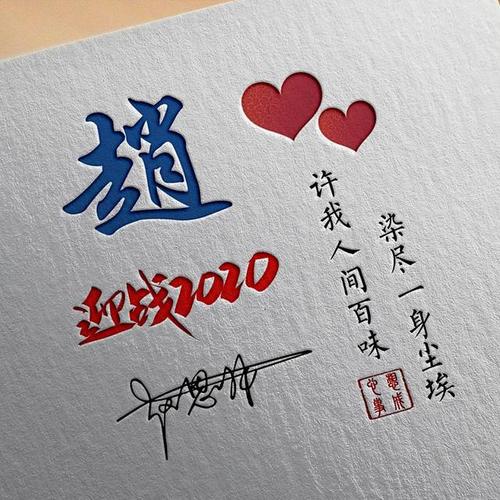 趙
迎战2020
染尽一身尘埃
许我人间百味
心想
事成